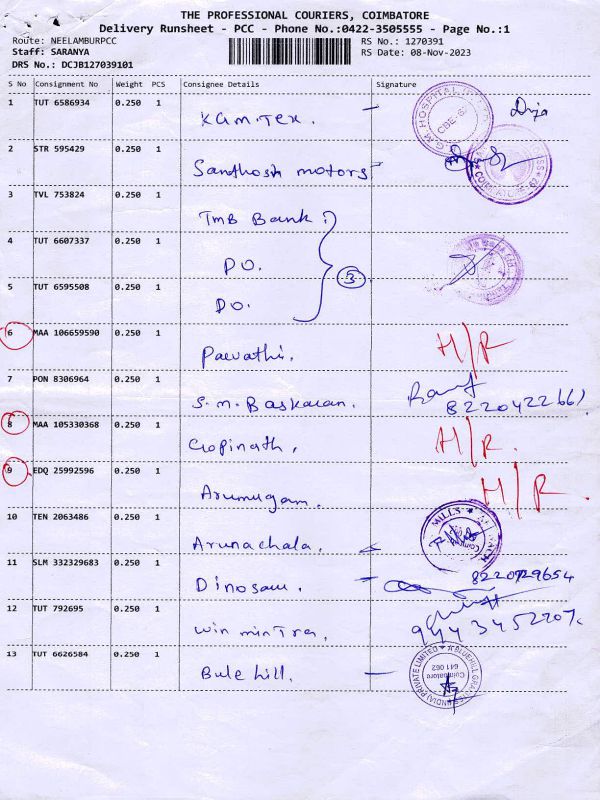 THE PROFESSIONAL COURIERS, COIMBATORE
Delivery Runsheet - PCC - Phone No.:0422-3505555 - Page No.:1
Route: NEELAMBURPCC
Staff: SARANYA
DRS No.: DCJB127039101
RS No.: 1270391
RS Date: 08-Nov-2023
S No Consignment No Weight PCS Consignee Details Signature
1 TUT 6586934 0.250 1
KGM.Tex.
2 STR 595429 0.250 1
Santhosh motors
3 TVL 753824 0.250 1
TMB Bank.
4 TUT 6607337 0.250 1
DO. 3
5 TUT 6595508 0.250 1
DO.
6 MAA 106659590 0.250 1
Parvathi. H/R
7 PON 8306964 0.250 1
S.M.Baskaran.
8 MAA 105330368 0.250 1
Gopinath. H/R.
9 EDQ 25992596 0.250 1
Arumugam. H/R.
10 TEN 2063486 0.250 1
MILLS
Arunachala.
11 SLM 332329683 0.250 1
Dinosaur.
12 TUT 792695 0.250 1
win mintra.
13 TUT 6626584 0.250 1
Bule hill.
Coimbatore
641 062